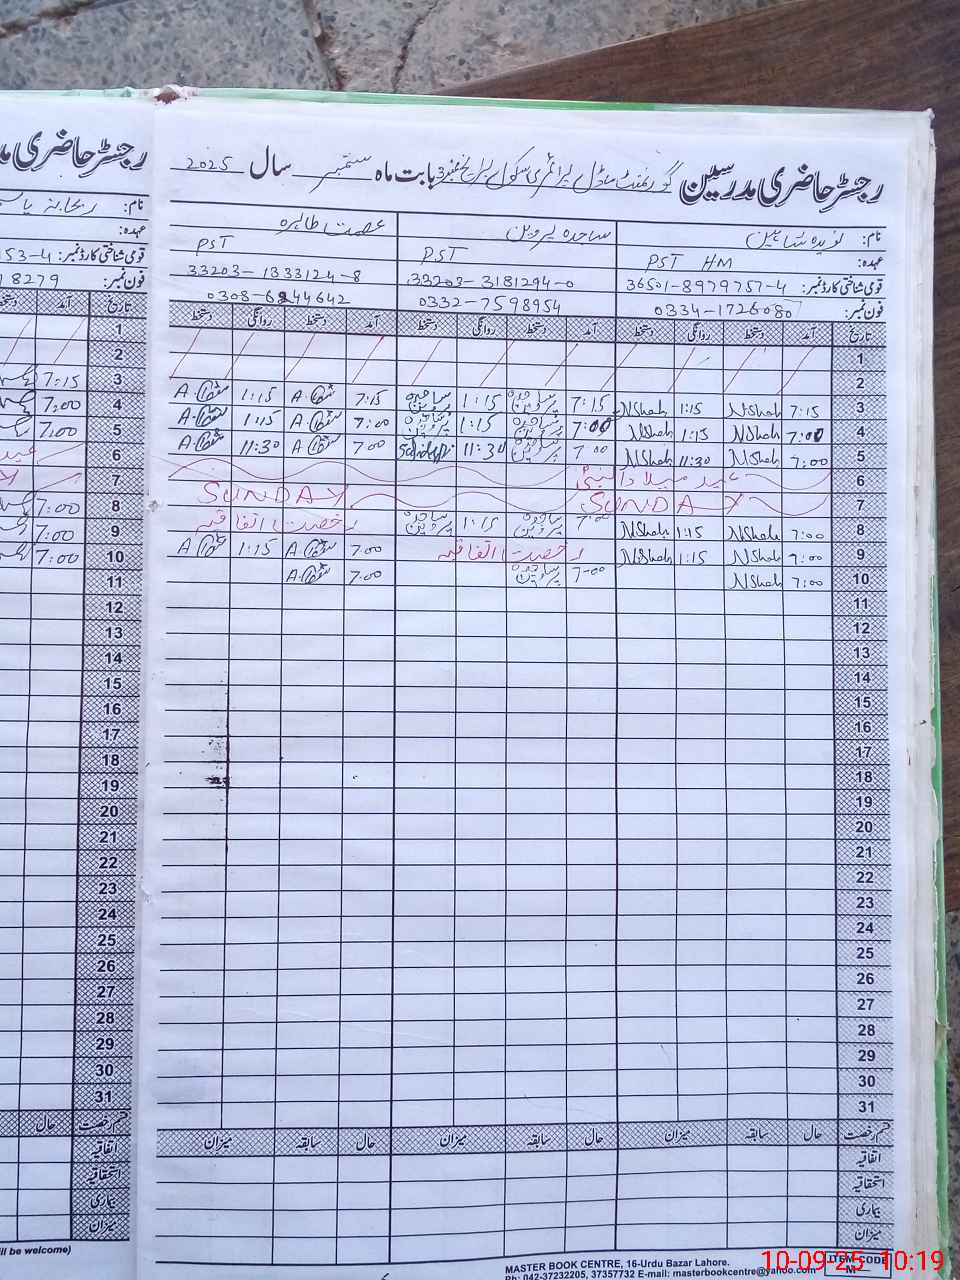 رجسٹر حاضری مدرسین گورنمنٹ ماڈل پرائمری سکول بابت ماہ ستمبر سال 2025
نام: نویدہ شاہین ساجدہ پروین عصمت طاہرہ
عہدہ: PST HM PST PST
قومی شناختی کارڈ نمبر: 36501-8979757-4 33203-3181294-0 33203-1333124-8
فون نمبر: 0334-1726080 0332-7598954 0308-6244642
تاریخ آمد دستخط روانگی دستخط آمد دستخط روانگی دستخط آمد دستخط روانگی دستخط
1
2
3 7:15 NShah 1:15 NShah 7:15 ساجدہ پروین 1:15 ساجدہ پروین 7:15 1:15
4 7:00 NShah 1:15 NShah 7:00 ساجدہ پروین 1:15 ساجدہ پروین 7:00 1:15
5 7:00 NShah 11:30 NShah 7:00 ساجدہ پروین 11:30 7:00 11:30
6 عید میلادالنبیؐ
7 SUNDAY SUNDAY
8 7:00 NShah 1:15 NShah 7:00 ساجدہ پروین 1:15 ساجدہ پروین رخصت اتفاقیہ
9 7:00 NShah 1:15 NShah رخصت اتفاقیہ 7:00 1:15
10 7:00 NShah 7:00 ساجدہ پروین 7:00
11
12
13
14
15
16
17
18
19
20
21
22
23
24
25
26
27
28
29
30
31
قسم رخصت حال سابقہ میزان حال سابقہ میزان حال سابقہ میزان
اتفاقیہ
استحقاقیہ
بیماری
میزان
MASTER BOOK CENTRE, 16-Urdu Bazar Lahore.
Ph: 042-37232205, 37357732 E-mail: masterbookcentre@yahoo.com
ITEM CODE
M
10-09-25 10:19
رجسٹر حاضری
نام:
عہدہ:
قومی شناختی کارڈ نمبر: 153-4
فون نمبر: 8279
تاریخ آمد
1
2
3 7:15
4 7:00
5 7:00
6
7
8 7:00
9 7:00
10 7:00
11
12
13
14
15
16
17
18
19
20
21
22
23
24
25
26
27
28
29
30
31
قسم رخصت حال
اتفاقیہ
استحقاقیہ
بیماری
میزان
ll be welcome)